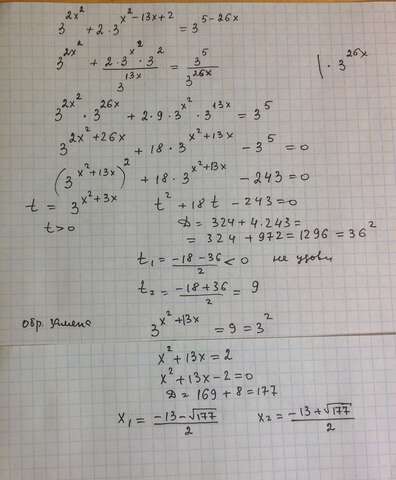 3^{2x^2} + 2·3^{x^2-13x+2} = 3^{5-26x}
3^{2x^2} + \frac{2·3^{x^2}·3^2}{3^{13x}} = \frac{3^5}{3^{26x}} | · 3^{26x}
3^{2x^2} · 3^{26x} + 2·9·3^{x^2}·3^{13x} = 3^5
3^{2x^2+26x} + 18·3^{x^2+13x} - 3^5 = 0
(3^{x^2+13x})^2 + 18·3^{x^2+13x} - 243 = 0
t = 3^{x^2+3x} t^2 + 18t - 243 = 0
t>0 D = 324 + 4·243 =
= 324 + 972 = 1296 = 36^2
t_1 = \frac{-18-36}{2} < 0 не удовл
t_2 = \frac{-18+36}{2} = 9
обр. замена 3^{x^2+13x} = 9 = 3^2
x^2 + 13x = 2
x^2 + 13x - 2 = 0
D = 169 + 8 = 177
x_1 = \frac{-13-\sqrt{177}}{2} x_2 = \frac{-13+\sqrt{177}}{2}